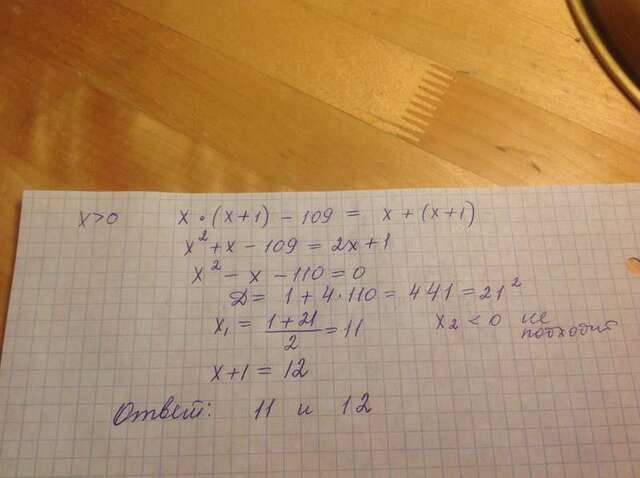 x>0 x·(x+1) - 109 = x + (x+1)
x² + x - 109 = 2x + 1
x² - x - 110 = 0
D = 1 + 4·110 = 441 = 21²
x₁ = (1+21)/2 = 11 x₂ < 0 не подходит
x+1 = 12
Ответ: 11 и 12